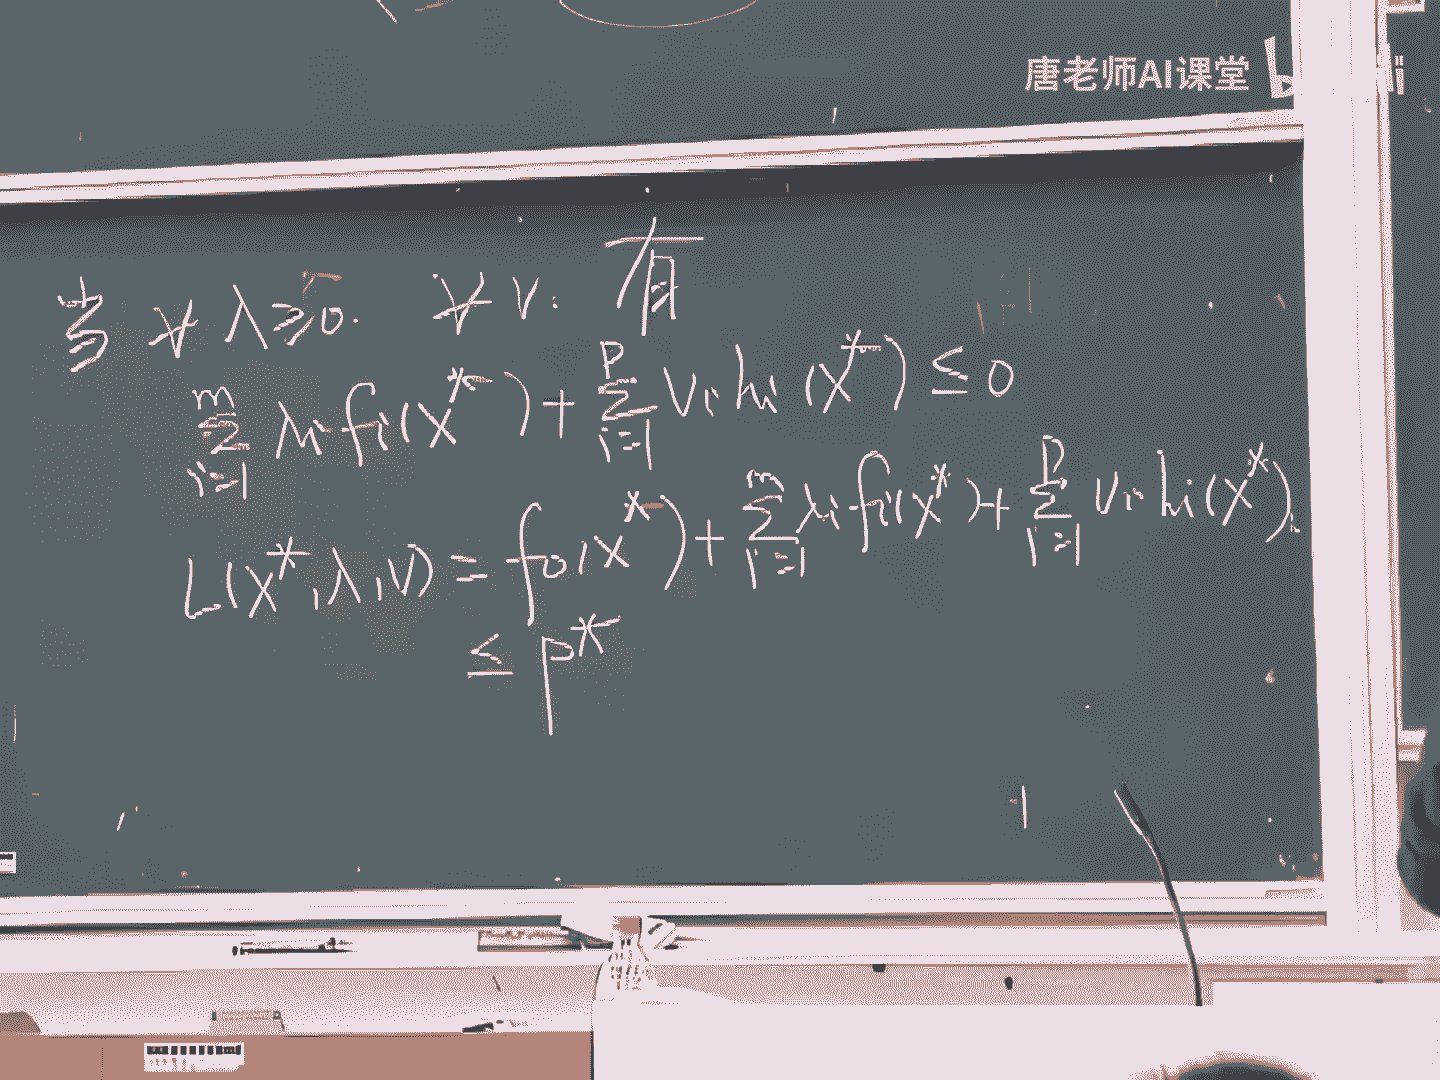 唐老师AI课堂
当 ∀ λ≥0. ∀ v. 有
∑_{i=1}^{m} λi fi(x*) + ∑_{i=1}^{p} vi hi(x*) ≤ 0
L(x*,λ,v) = f0(x*) + ∑_{i=1}^{m} λi fi(x*) + ∑_{i=1}^{p} vi hi(x*).
≤ p*